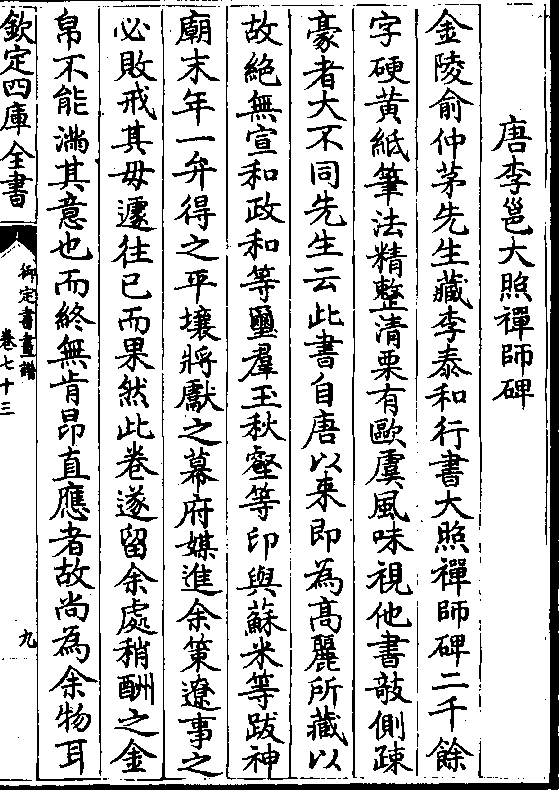 唐李邕大照禪師碑
金陵俞仲茅先生藏李泰和行書大照禪師碑二千餘
字硬黃紙筆法精整清栗有歐虞風味視他書敧側疎
豪者大不同先生云此書自唐以来即為髙麗所藏以
故絶無宣和政和等璽羣玉秋壑等印與蘇米等跋神
廟末年一弁得之平壤將獻之幕府媒進余策遼事之
必敗戒其毋遽往已而果然此卷遂留余處稍酬之金
帛不能滿其意也而終無肯昂直應者故尚為余物耳
欽定四庫全書
御定書畫譜
卷七十三
九